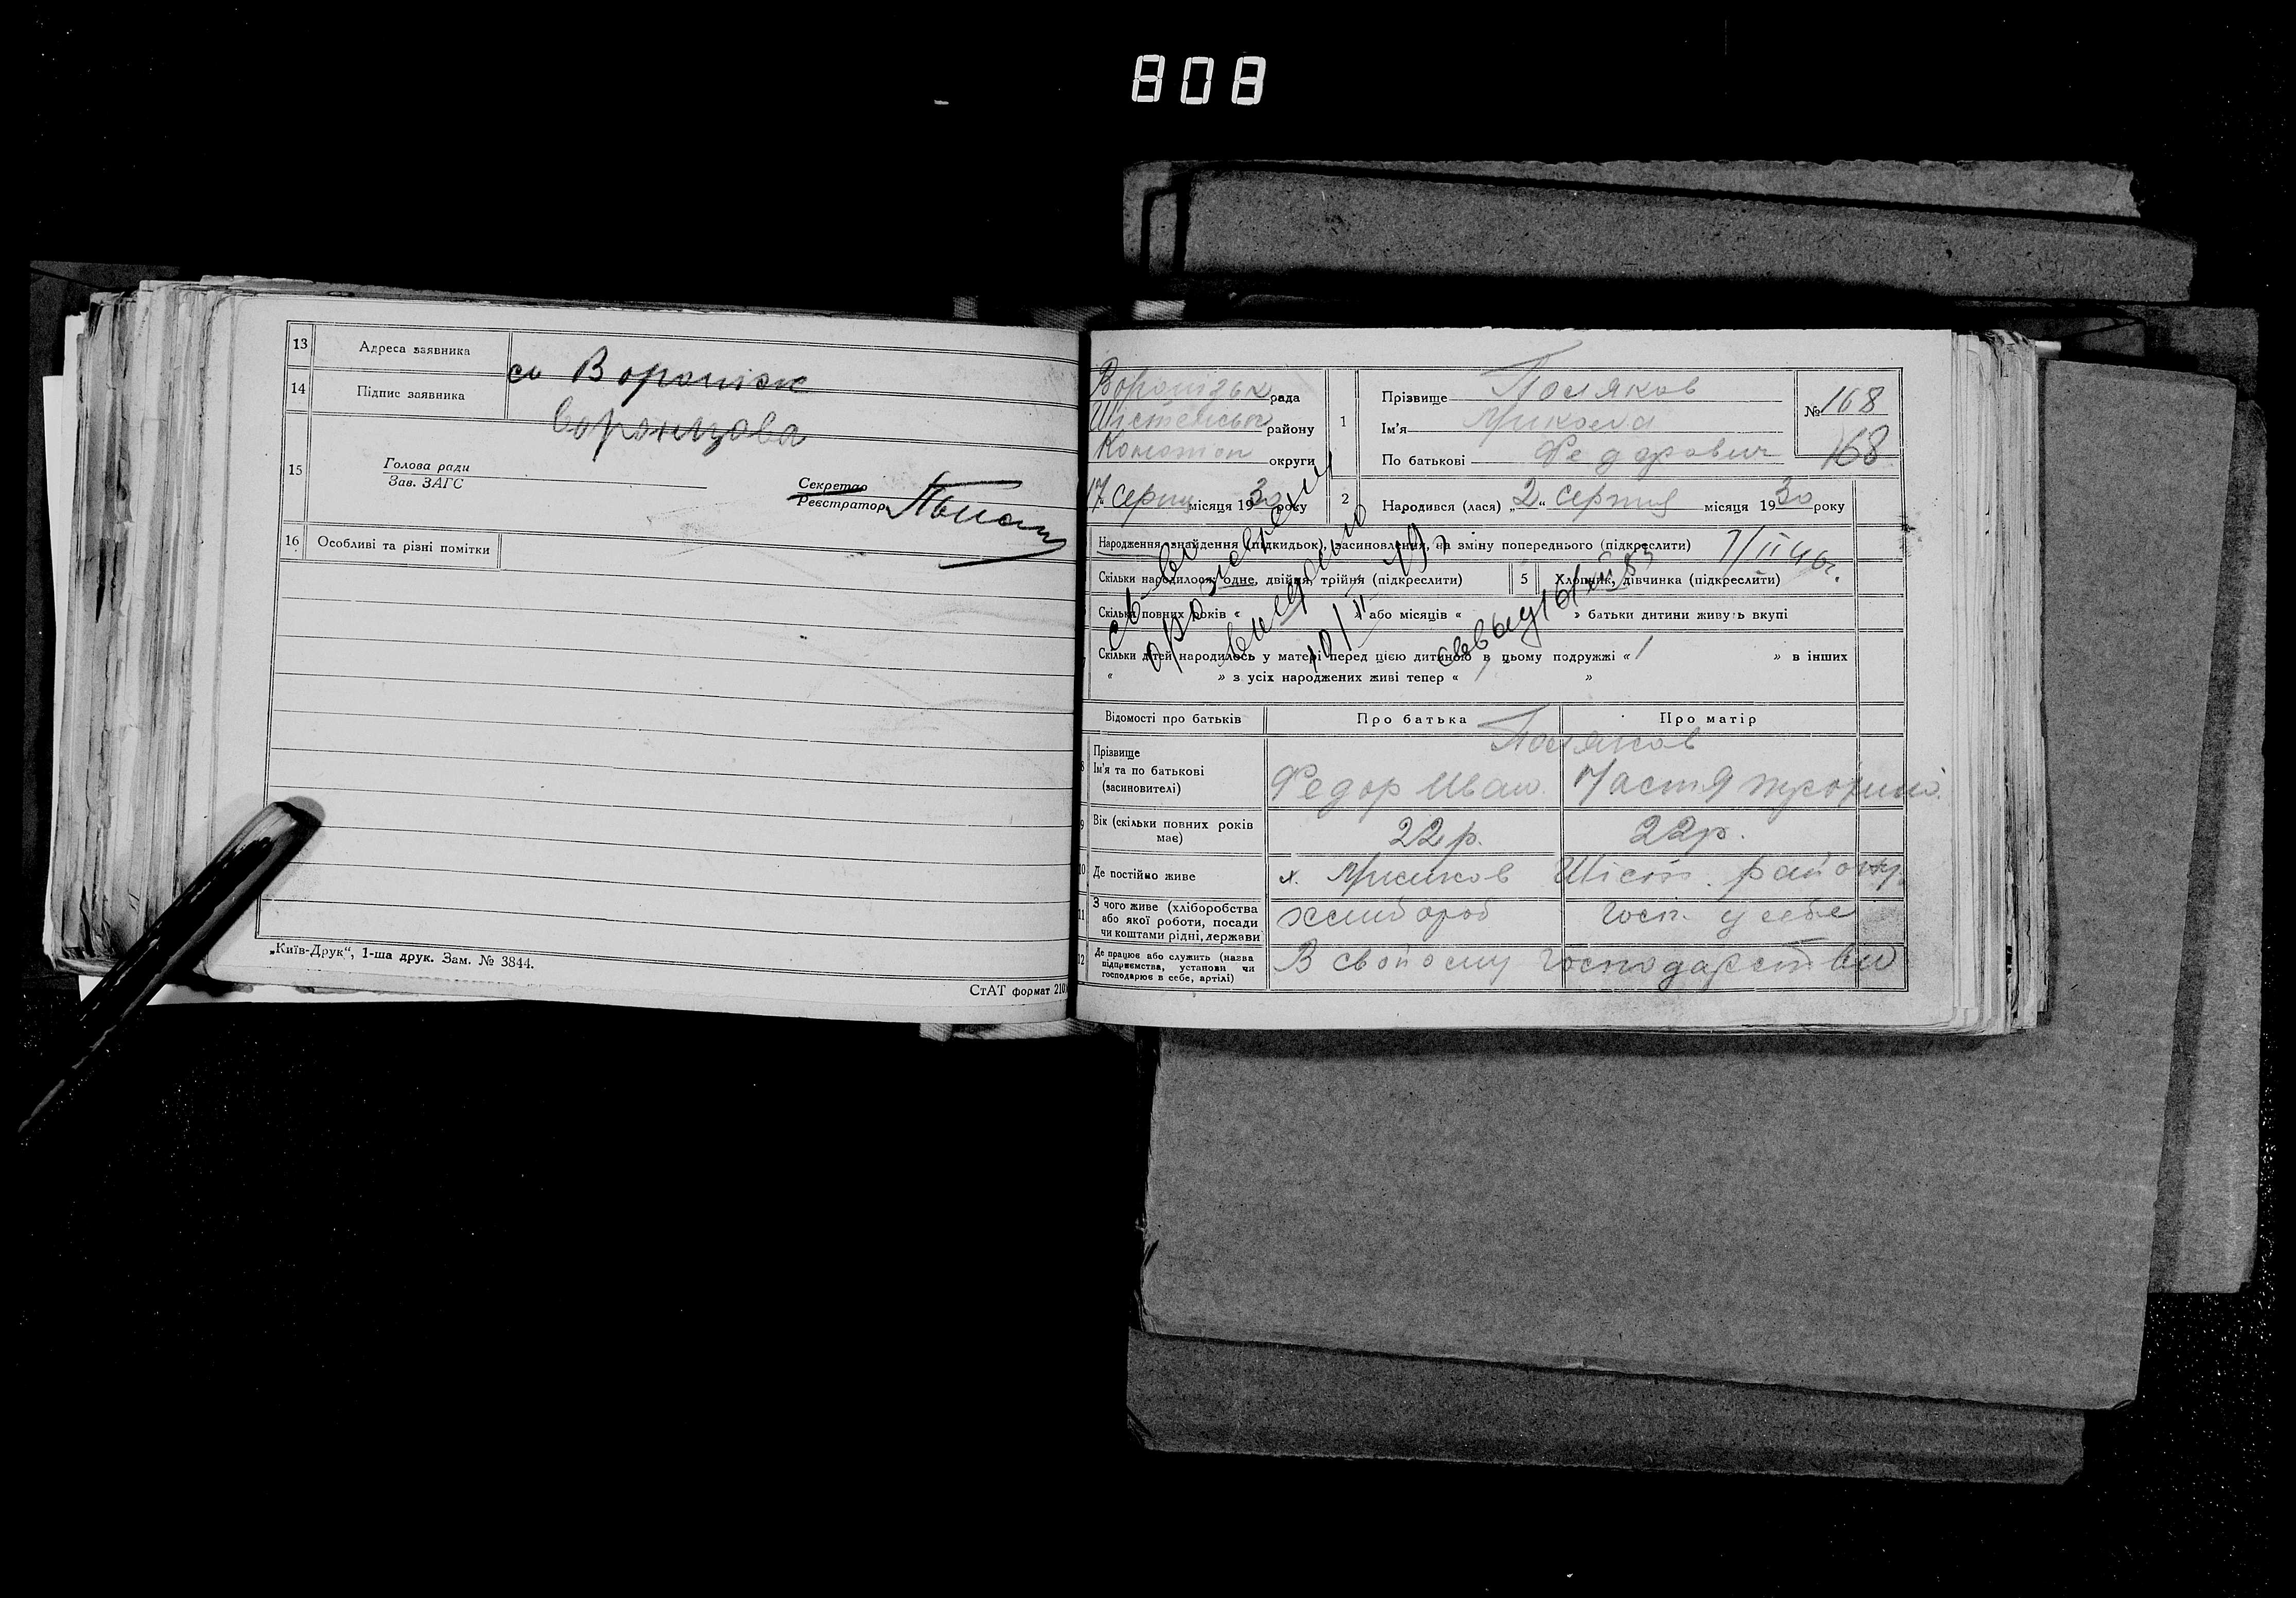 808
13 Адреса заявника с Вороніж
14 Підпис заявника Воронцова
15 Голова ради
Зав. ЗАГС
Секретар
Реєстратор
16 Особливі та різні помітки
„Київ-Друк“, 1-ша друк. Зам. № 3844.
СтАТ формат 210
рада
району
Конотоп округи
1 Прізвище Поляков
Ім'я Микола
По батькові Федорович
№ 168
168
17 серпн місяця 1930 року
2 Народився (лася) „2“ серпня місяця 1930 року
Народження, знайдення (підкидьок), засиновлення, на зміну попереднього (підкреслити)
Скільки народилося: одне, двійня, трійня (підкреслити) 5 Хлопчик, дівчинка (підкреслити)
Скільки повних років « » або місяців « » батьки дитини живуть вкупі
Скільки дітей народилось у матері перед цією дитиною в цьому подружжі « 1 » в інших
« » з усіх народжених живі тепер « »
Відомості про батьків Про батька Про матір
8 Прізвище Поляков
Ім'я та по батькові Федор Иван. Настя
(засиновителі)
9 Вік (скільки повних років має) 22 р. 22 р.
10 Де постійно живе х. Шіст. району
11 З чого живе (хліборобства
або якої роботи, посади
чи коштами рідні, держави хлибороб госп. у себе
12 Де працює або служить (назва
підприємства, установи чи
господарює в себе, артілі) В свойому господарстви